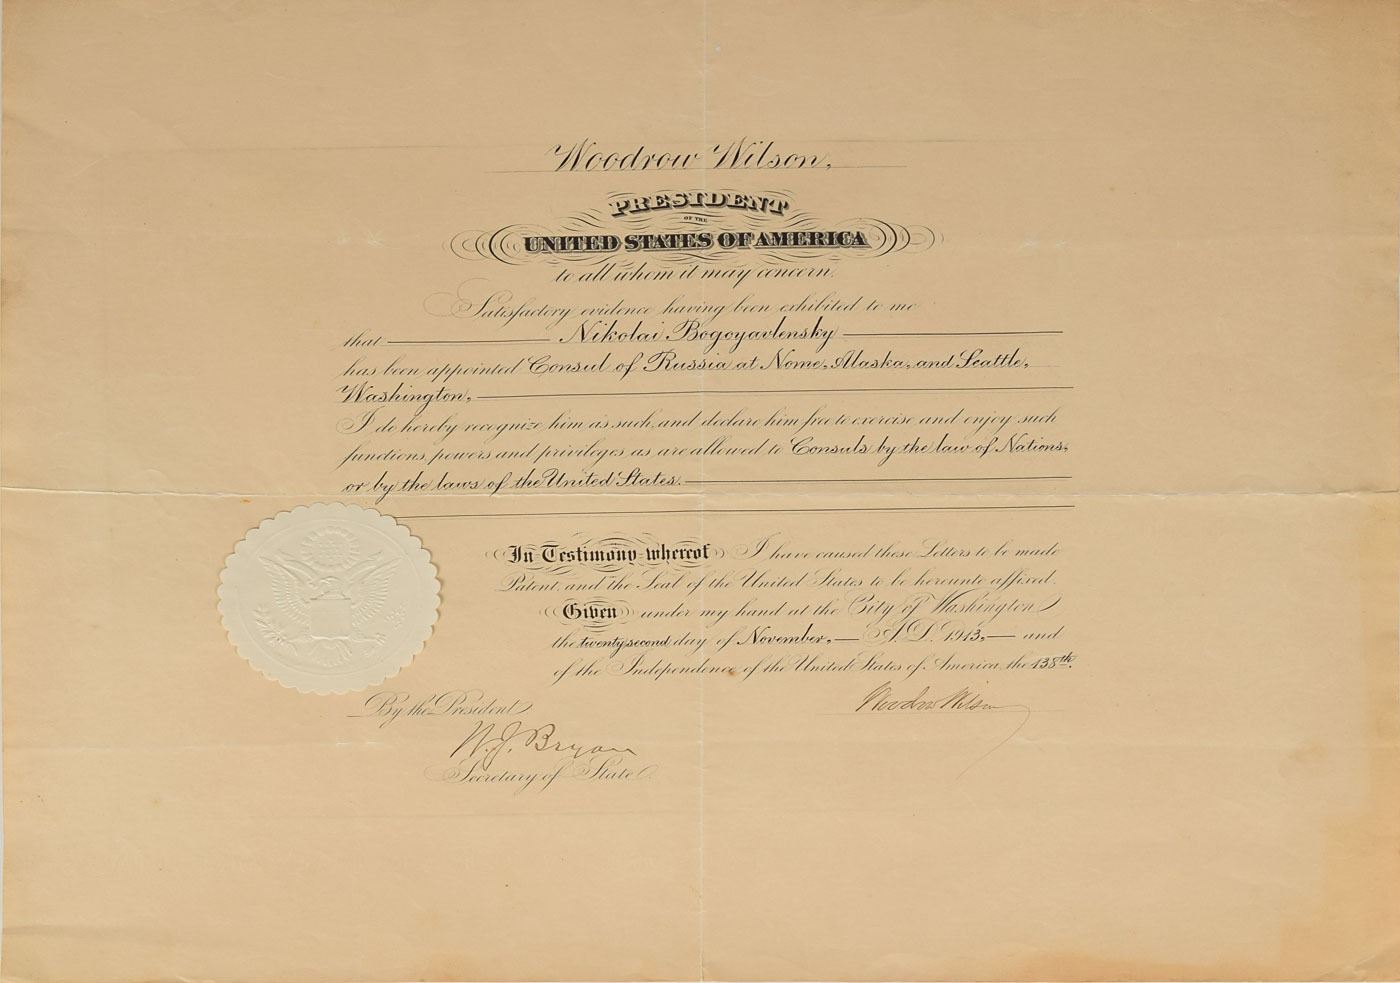 Woodrow Wilson,
PRESIDENT
OF THE
UNITED STATES OF AMERICA
to all whom it may concern.
Satisfactory evidence having been exhibited to me
that Nikolai Bogoyavlensky
has been appointed Consul of Russia at Nome, Alaska, and Seattle,
Washington,
I do hereby recognize him as such, and declare him free to exercise and enjoy such
functions, powers and privileges as are allowed to Consuls by the law of Nations,
or by the laws of the United States.
In Testimony whereof I have caused these Letters to be made
Patent, and the Seal of the United States to be hereunto affixed.
Given under my hand at the City of Washington
the twenty-second day of November, A.D. 1913, and
of the Independence of the United States of America, the 138th.
Woodrow Wilson
By the President
W. J. Bryan
Secretary of State.